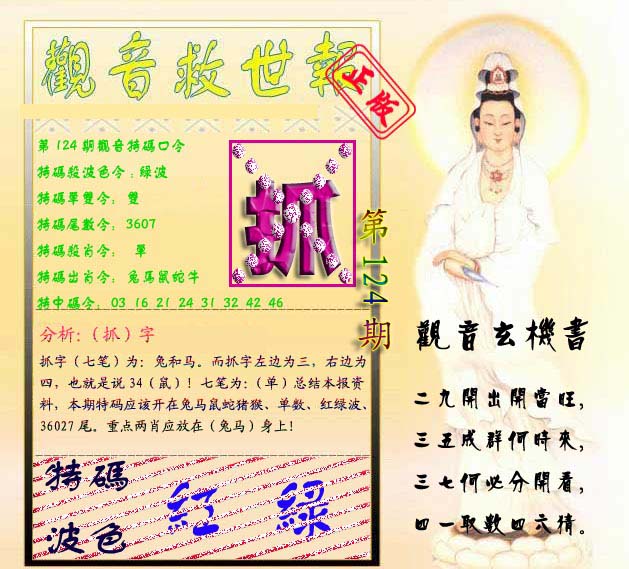 觀音救世報
正版
第124期觀音特碼口令
特碼殺波色令:綠波
特碼單雙令: 雙
特碼尾數令: 3607
特碼殺肖令: 單
特碼出肖令: 兔馬鼠蛇牛
特中碼令: 03 16 21 24 31 32 42 46
抓
第124期
分析:（抓）字
抓字（七笔）为：兔和马。而抓字左边为三，右边为
四，也就是说34（鼠）！七笔为：（单）总结本报资
料，本期特码应该开在兔马鼠蛇猪猴、单数、红绿波、
36027尾。重点两肖应放在（兔马）身上!
特碼
波色
紅 綠
觀音玄機書
二九開出開當旺,
三五成群何時來,
三七何必分開看,
四一取數四六猜。